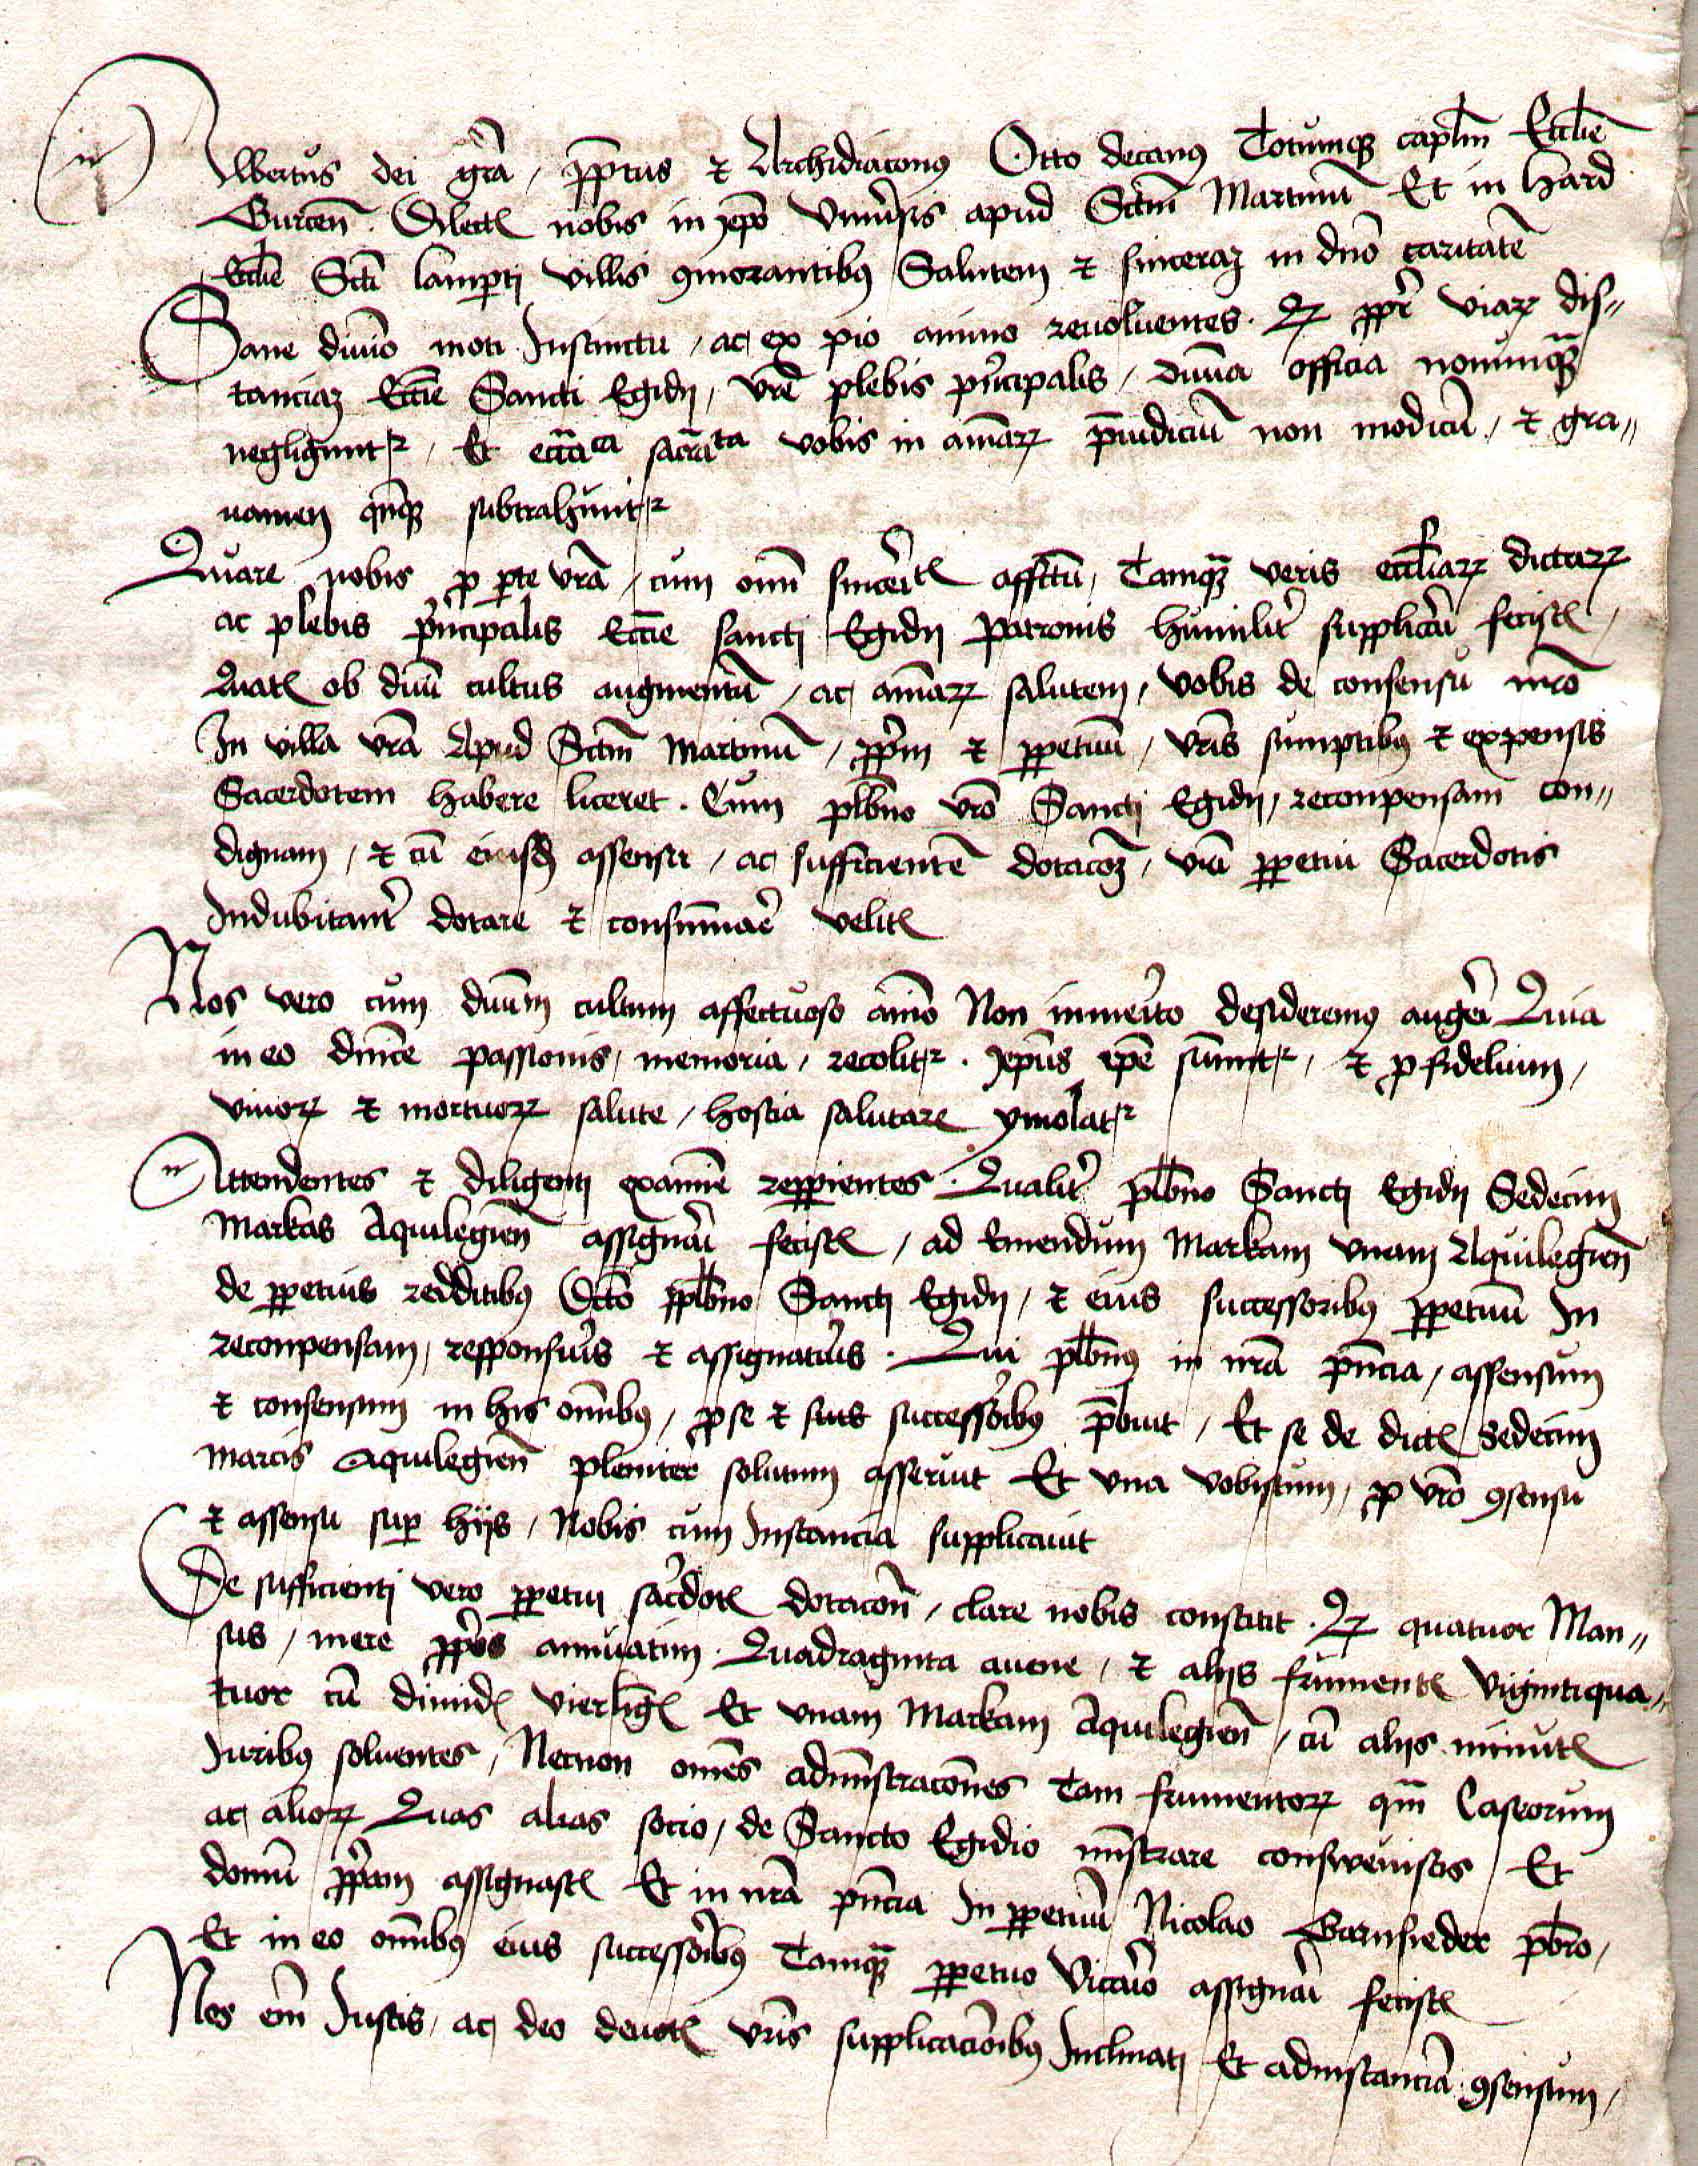 Albertus dei gr̄a, p̄ptus ⁊ Archidiaconꝰ Otto decanꝰ Totumqꝫ capl̄m Eccl̄ie
Gurcen̄. Dilectꝭ nobis in xp̄o Vniu̓sis apud Sctm̄ Martinū Et in hard
Eccl̄ie Scti lamperti villis ꝯmorantibꝰ Salutem ⁊ sinceraꝫ in dn̄o caritatē
Sane diuīo moti Instinctu, ac ex pio animo reuoluentes. Qꝫ ꝓpt̓ viaꝝ dis〃
tanciaꝫ Ecc̄ie Sancti Egidij, vr̄e plebis pn̓cipalis, diuīa officia nonūnqꝫ
negligunt᷑, Et ecc̄iāca sacrāta vobis in am̄aꝝ p̄iudiciū non modicū, ⁊ gra〃
uamen qn̄qꝫ subtrahunt᷑
Quare nobis ꝓ ꝑte vr̄a, cum om̄i sincei̓tꝭ affc̄tu, Tamqꝫ veris eccl̄iaꝝ dictaꝝ
ac plebis pn̓cipalis Ecc̄ie sancti Egidij patronis humilit̓ supplicā̓i fecistꝭ,
Quatꝭ ob diuī cultus augmentū, ac am̄aꝝ salutem, vobis de consensu nr̄o
In villa vr̄a Apud Sctm̄ Martinū, ꝓpr̓m ⁊ ꝑpetuū, vr̄is sumptibꝰ ⁊ expensis
Sacerdotem habere liceret. Cum plb̄no vr̄o Sancti Egidij, reconpensam con〃
dignam, ⁊ cū eiusdꝫ assensu, ac sufficientē dotacōꝫ, vr̄i ꝑpetui Sacerdotis
Indubitant̓ dotare ⁊ consūmae̓ velitꝭ
Nos vero cum diuīm cultum affectuoso aīo Non inmei̓to desideremꝰ auge̓i Quia
in eo dn̄ice passionis, memoria, recolit᷑. xp̄us ip̄e sūmit᷑, ⁊ ꝓ fidelium,
viuoꝝ ⁊ mortuoꝝ salute, hostia salutarꝭ ymolat᷑
Attendentes ⁊ diligenti examīe repꝑientes. Qualit̓ plb̄no Sancti Egidij Sedecim
Markas Aquilegien̄ assignai̓ fecistꝭ, ad Emendum Markam vnam Aquilegien̄
de ꝑpetuis redditibꝰ Dcto plb̄no Sancti Egidij, ⁊ eius successoribꝰ ꝑpetuū In
reconpensam, responsui̓s ⁊ assignatui̓s. Qui plb̄nꝰ in nr̄a pn̄cia, assensum
⁊ consensum in his om̄ibꝰ, ꝓ se ⁊ suis successoi̓bꝰ p̄buit, Et se de dictꝭ Sedecim
marcis Aquilegien̄ pleniter solutum asseruit Et vna vobiscum, ꝓ vr̄o ꝯsensu
⁊ assensu suꝑ hijs, Nobis cum Instancia supplicauit
De sufficienti vero ꝑpetui sac̓dotꝭ dotacōn̄, clare nobis constitit. Qꝫ quatuor Man〃
sus, mere ꝓpr̓os annuatim. Quadraginta auene, ⁊ alijs frumentꝭ viginti qua〃
tuor cū dimidꝭ vierlīgꝭ Et vnam Markam Aquilegien̄, cū alijs minutꝭ
Iuribꝰ soluentes, Necnon om̄es admīstracōnes Tam frumentoꝝ qm̄ Caseorum
ac alioꝝ Quas alias socio, de Sancto Egidio mīstrare conswevistis, Et
domū ꝓpr̓am assignastꝭ Et in nr̄a pn̄cia In ꝑpetuū Nicolao Garnsieder pb̄ro,
Et in eo om̄ibꝰ eius successoi̓bꝰ Tamqꝫ ꝑpetuo Vicai̓o assignai̓ fecistꝭ
Nos em̄ Iustis, ac deo deuotꝭ vr̄is supplicacōnibꝰ Inclinati Et adinstanciā ꝯsensum,